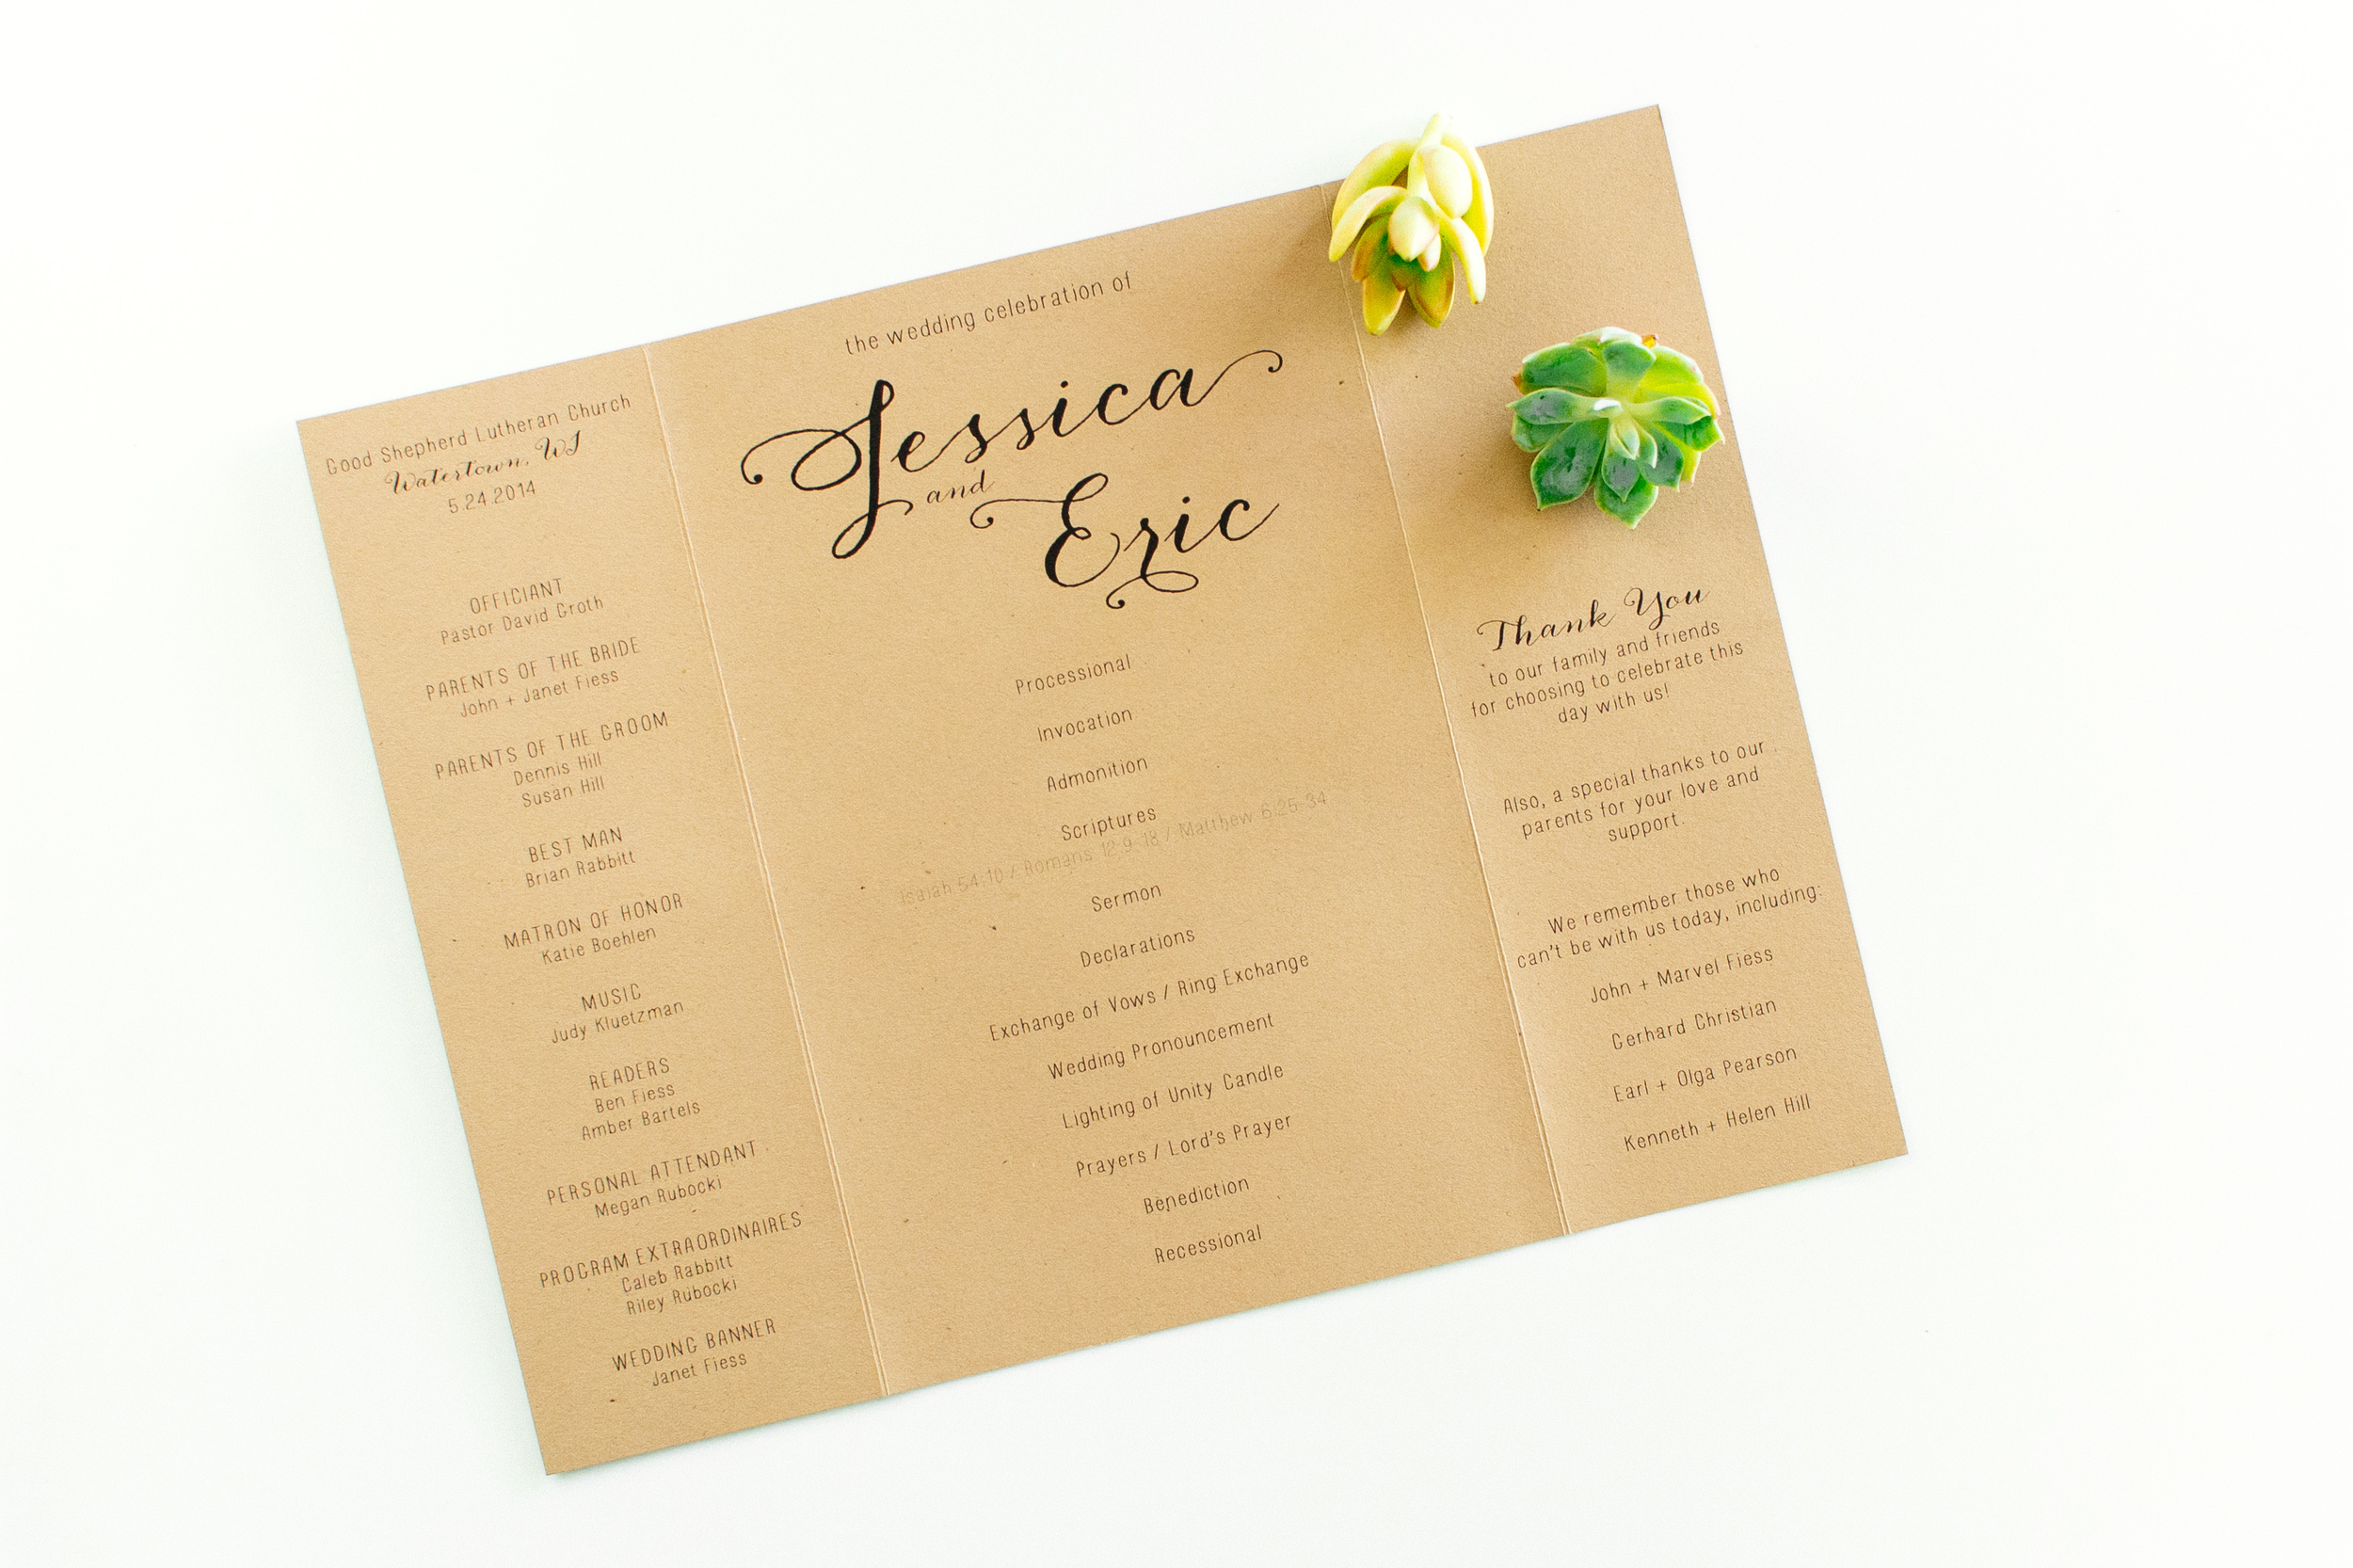 Good Shepherd Lutheran Church
Watertown, WI
5.24.2014
OFFICIANT
Pastor David Groth
PARENTS OF THE BRIDE
John + Janet Fiess
PARENTS OF THE GROOM
Dennis Hill
Susan Hill
BEST MAN
Brian Rabbitt
MATRON OF HONOR
Katie Boehlen
MUSIC
Judy Kluetzman
READERS
Ben Fiess
Amber Bartels
PERSONAL ATTENDANT
Megan Rubocki
PROGRAM EXTRAORDINAIRES
Caleb Rabbitt
Riley Rubocki
WEDDING BANNER
Janet Fiess
the wedding celebration of
Jessica
and
Eric
Processional
Invocation
Admonition
Scriptures
Isaiah 54:10 / Romans 12:9-18 / Matthew 6:25-34
Sermon
Declarations
Exchange of Vows / Ring Exchange
Wedding Pronouncement
Lighting of Unity Candle
Prayers / Lord's Prayer
Benediction
Recessional
Thank You
to our family and friends
for choosing to celebrate this
day with us!
Also, a special thanks to our
parents for your love and
support.
We remember those who
can't be with us today, including:
John + Marvel Fiess
Gerhard Christian
Earl + Olga Pearson
Kenneth + Helen Hill